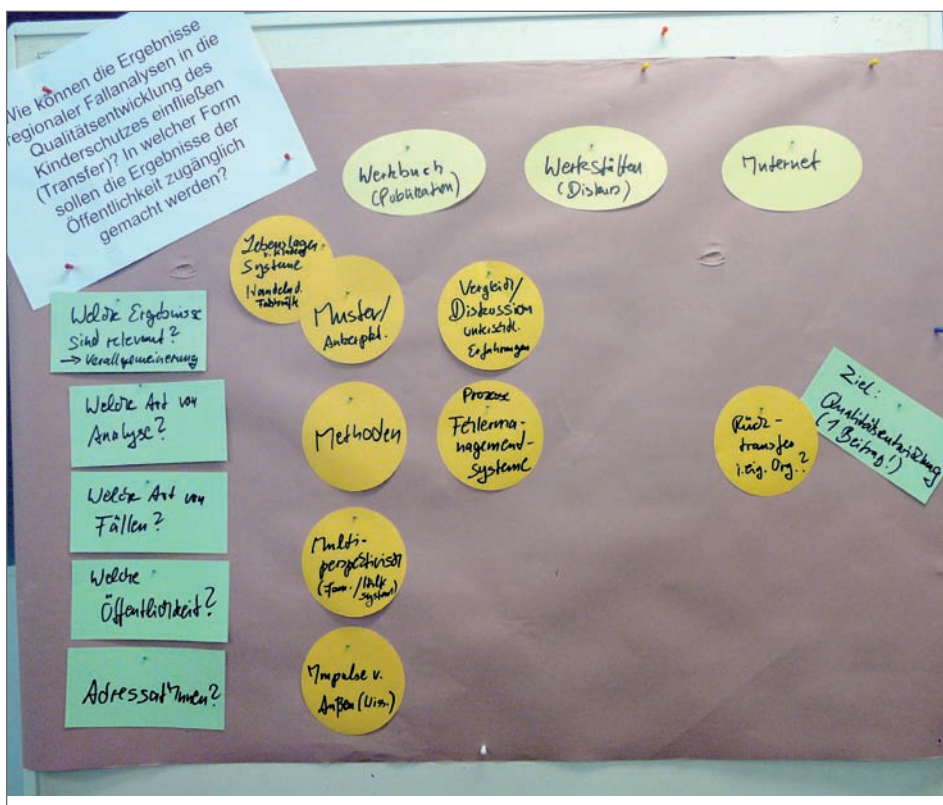 Wie können die Ergebnisse
regionaler Fallanalysen in die
Qualitätsentwicklung des
Kinderschutzes einfließen
(Transfer)? In welcher Form
sollen die Ergebnisse der
Öffentlichkeit zugänglich
gemacht werden?
Werkbuch
(Publikation)
Werkstätten
(Diskurs)
Internet
Lebenslagen
v. Kindern
Systeme
Handeln d.
Fachkräfte
Muster/
Ankerpkt.
Vergleich/
Diskussion
unterschdl.
Erfahrungen
Welche Ergebnisse
sind relevant?
→ Verallgemeinerung
Welche Art von
Analyse?
Methoden
Prozesse
Fehlerma-
nagement-
systeme
Rück-
transfer
i. eig. Org.?
Ziel:
Qualitätsentwicklung
(1 Beitrag!)
Welche Art von
Fällen?
Multi-
perspektivisch
(Fam./Hilf
system)
Welche
Öffentlichkeit?
Adressat*innen?
Impulse v.
Außen (Wiss.)